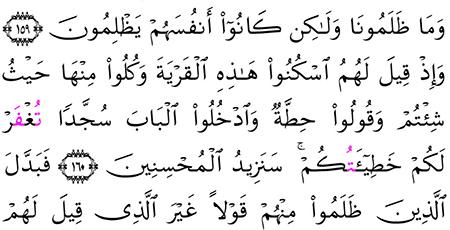 وَمَا ظَلَمُونَا وَلَٰكِن كَانُوٓا۟ أَنفُسَهُمْ يَظْلِمُونَ ١٥٩
وَإِذْ قِيلَ لَهُمُ ٱسْكُنُوا۟ هَٰذِهِ ٱلْقَرْيَةَ وَكُلُوا۟ مِنْهَا حَيْثُ
شِئْتُمْ وَقُولُوا۟ حِطَّةٌ وَٱدْخُلُوا۟ ٱلْبَابَ سُجَّدًا تُغْفَرْ
لَكُمْ خَطِيٓـَٔتُكُمْ ۚ سَنَزِيدُ ٱلْمُحْسِنِينَ ١٦٠ فَبَدَّلَ
ٱلَّذِينَ ظَلَمُوا۟ مِنْهُمْ قَوْلًا غَيْرَ ٱلَّذِى قِيلَ لَهُمْ